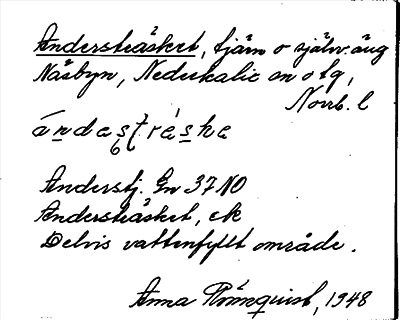 Andersträsket, tjärn o självr. äng
Näsbyn, Nederkalix sn o tg,
Norrb. l
ándeʂtrɛ̀ske
6
Anderstj. Gv 37 NO
Andersträsket, ek
Delvis vattenfyllt område.
Anna Rönnquist, 1948